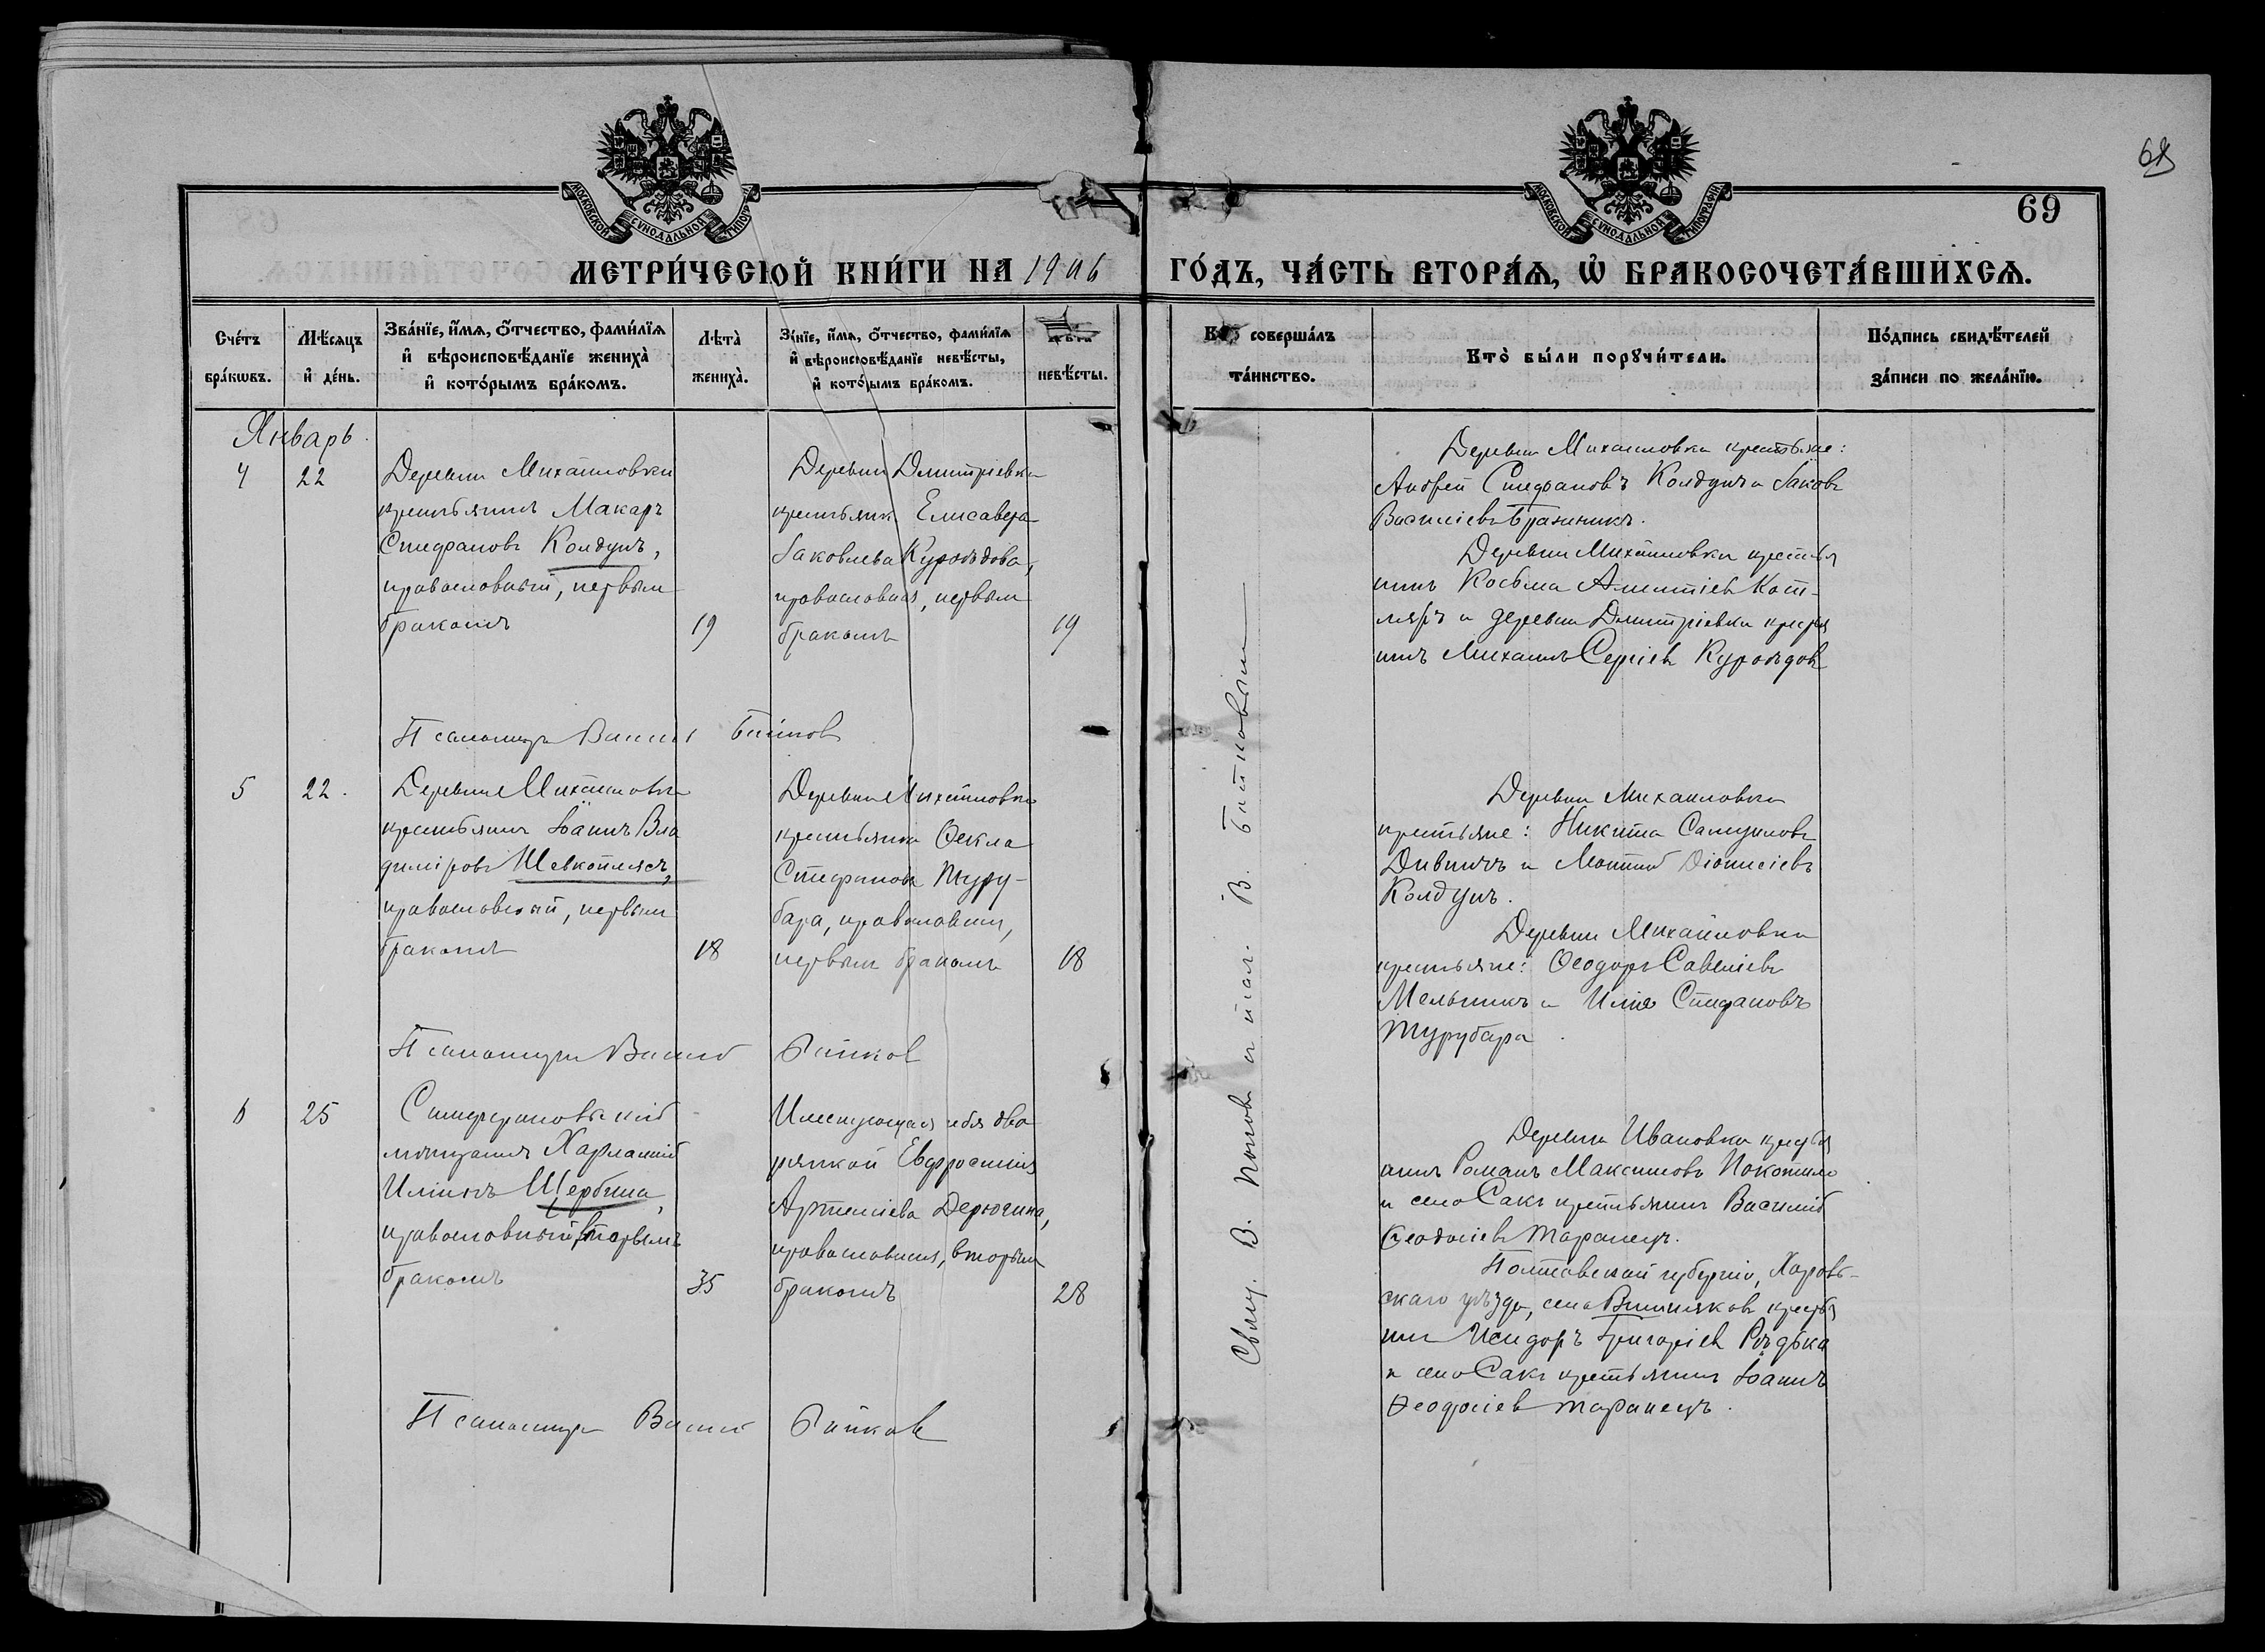 68
69
МОСКОВСКОЙ СѴНОДАЛЬНОЙ ТИПОГРАФІИ
МОСКОВСКОЙ СѴНОДАЛЬНОЙ ТИПОГРАФІИ
МЕТРИ́ЧЕСКОЙ КНИ́ГИ НА 1906 ГО́ДЪ, ЧА́СТЬ ВТОРА́Ѧ, Ѡ҆ БРАКОСОЧЕТА́ВШИХСѦ.
Сче́тъ бра́кѡвъ.
Мѣ́сѧцъ и҆ де́нь.
Зва́нїе, и҆́мѧ, ѻ҆́тчество, фами́лїѧ
и҆ вѣроисповѣ́данїе жениха̀
и҆ кото́рымъ бра́комъ.
Лѣта̀ жениха̀.
Зва́нїе, и҆́мѧ, ѻ҆́тчество, фами́лїѧ
и҆ вѣроисповѣ́данїе невѣ́сты,
и҆ кото́рымъ бра́комъ.
Лѣта̀ невѣ́сты.
Кто̀ соверша́лъ
та́инство.
Кто̀ бы́ли порꙋчи́тели.
По́дпись свидѣ́телей
за́писи по жела́нїю.
Январь.
4 22
Деревни Михайловки
крестьянинъ Макаръ
Стефановъ Колдунъ,
православный, первымъ
бракомъ
19
Деревни Дмитріевки
крестьянка Елисавета
Іаковлева Куроѣдова,
православная, первымъ
бракомъ
19
Деревни Михайловки крестьяне:
Андрей Стефановъ Колдунъ и Іаковъ
Василіевъ Бражникъ.
Деревни Михайловки крестья
нинъ Косьма Кот-
ляръ и деревни Дмитріевки крестья
нинъ Михаилъ Сергіевъ Куроѣдовъ
Псаломщикъ Василій Байковъ
5 22.
Деревни Михайловки
крестьянинъ Іоаннъ Вла
диміровъ Шевкоплясъ,
православный, первымъ
бракомъ
18
Деревни Михайловки
крестьянка Ѳекла
Стефанова Туру-
бара, православная,
первымъ бракомъ
18
Деревни Михайловки
крестьяне: Никита Самуиловъ
Дивничъ и Матѳій Діонисіевъ
Колдунъ.
Деревни Михайловки
крестьяне: Ѳеодоръ Савеліевъ
Мельникъ и Илія Стефановъ
Турубара.
Псаломщикъ Василій Байковъ
6 25
Симферопольскій
мѣщанинъ Харлампій
Иліинъ Щербина,
православный, вторымъ
бракомъ
35
Именующая себя дво
рянкой Евфросинія
Артеміева Дерюгина,
православная, вторымъ
бракомъ
28
Деревни Ивановки крестья
нинъ Романъ Максимовъ Покотило
и села Сакъ крестьянинъ Василій
Ѳеодосіевъ Таранецъ.
Полтавской губерніи, Хороль-
скаго уѣзда, села Вишняковъ крестья
нинъ Исидоръ Григоріевъ Рѣдька
и села Сакъ крестьянинъ Іоаннъ
Ѳеодосіевъ Таранецъ.
Псаломщикъ Василій Байковъ
Свящ. В. Поповъ и псал. В. Байковымъ